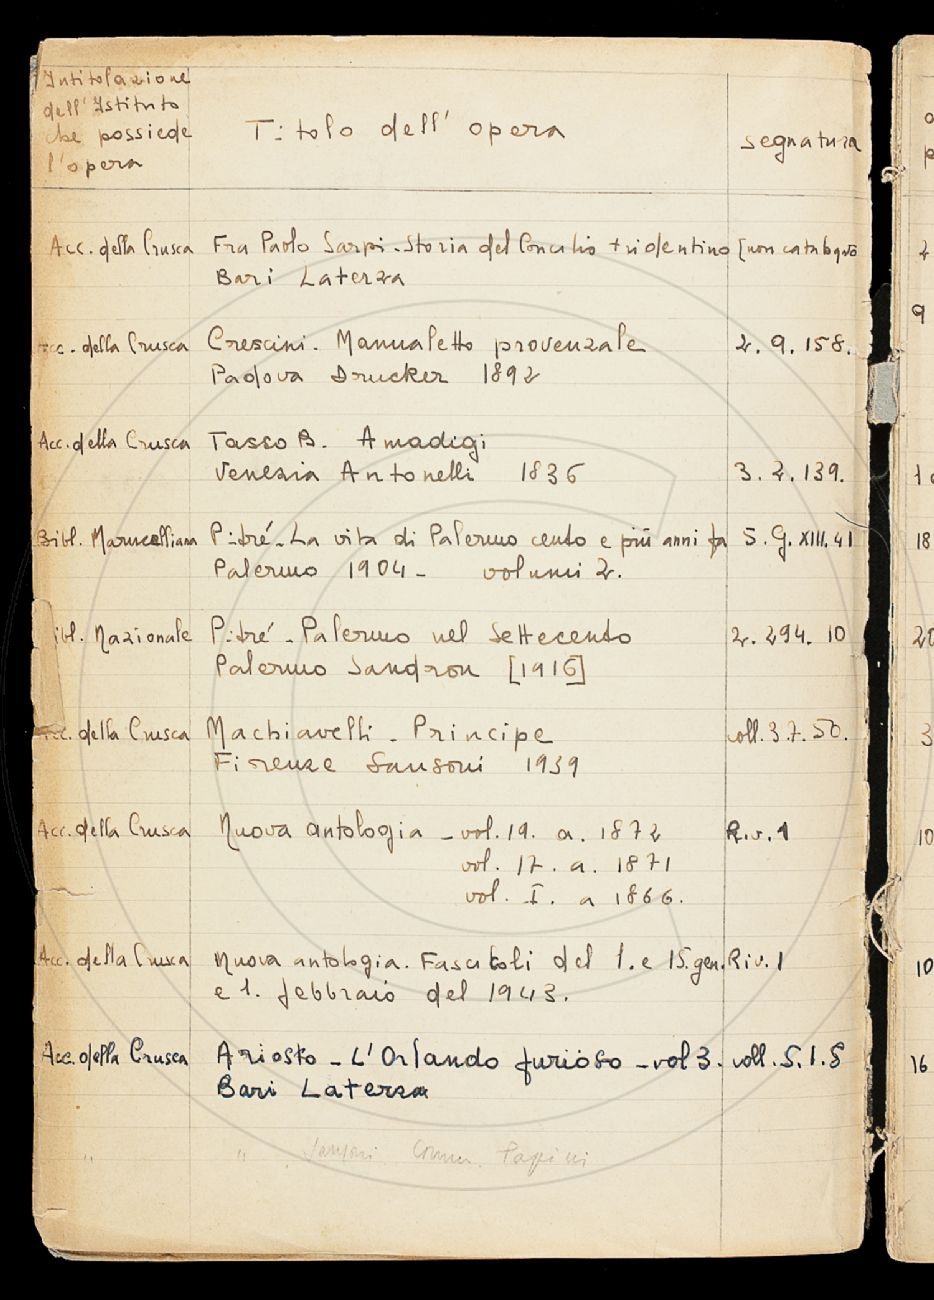 Intitolazione
dell'Istituto
che possiede
l'opera
Titolo dell'opera
segnatura
Acc. della Crusca Fra Paolo Sarpi - Storia del Concilio tridentino [non catalogato
Bari Laterza
Acc. della Crusca Crescini. Manualetto provenzale 2. 9. 158.
Padova Drucker 1892
Acc. della Crusca Tasso B. Amadigi
Venezia Antonelli 1836 3. 2. 139.
Bibl. Marucelliana Pitré - La vita di Palermo cento e più anni fa 5. G. XIII. 41
Palermo 1904 - volumi 2.
Bibl. Nazionale Pitré - Palermo nel Settecento 2. 294. 10
Palermo Sandron [1916]
Acc. della Crusca Machiavelli - Principe coll. 3.7. 50.
Firenze Sansoni 1939
Acc. della Crusca Nuova antologia - vol. 19. a. 1872 Riv. 1
vol. 17. a. 1871
vol. I. a 1866.
Acc. della Crusca Nuova antologia. Fascicoli del 1. e 15. gen. Riv. 1
e 1. febbraio del 1943.
Acc. della Crusca Ariosto - L'Orlando furioso - vol 3. coll. 5. 1. 8
Bari Laterza
" " Sansoni Comm. Papini
2
9
18
20
3
10
10
16